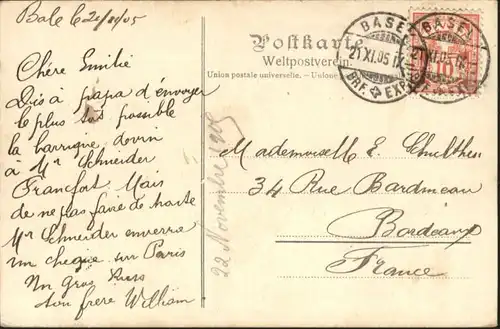 Bale le 21/XI/05
Postkarte
Weltpostverein.
Union postale universelle. – Union
BASEL
21.XI.05.IX
BRF. EXP.
BASEL
21.XI.05.IX
10
Chère Emilie
Dis à papa d'envoyer
le plus tôt possible
la barrique de vin
à Mr Schneider
Francfort. Mais
de ne pas faire de traite
Mr Schneider enverra
un cheque sur Paris
Un Gros
ton frere William
22 Novembre 1905
Mademoiselle E. Schulthes
34 Rue Bardineau
Bordeaux
France